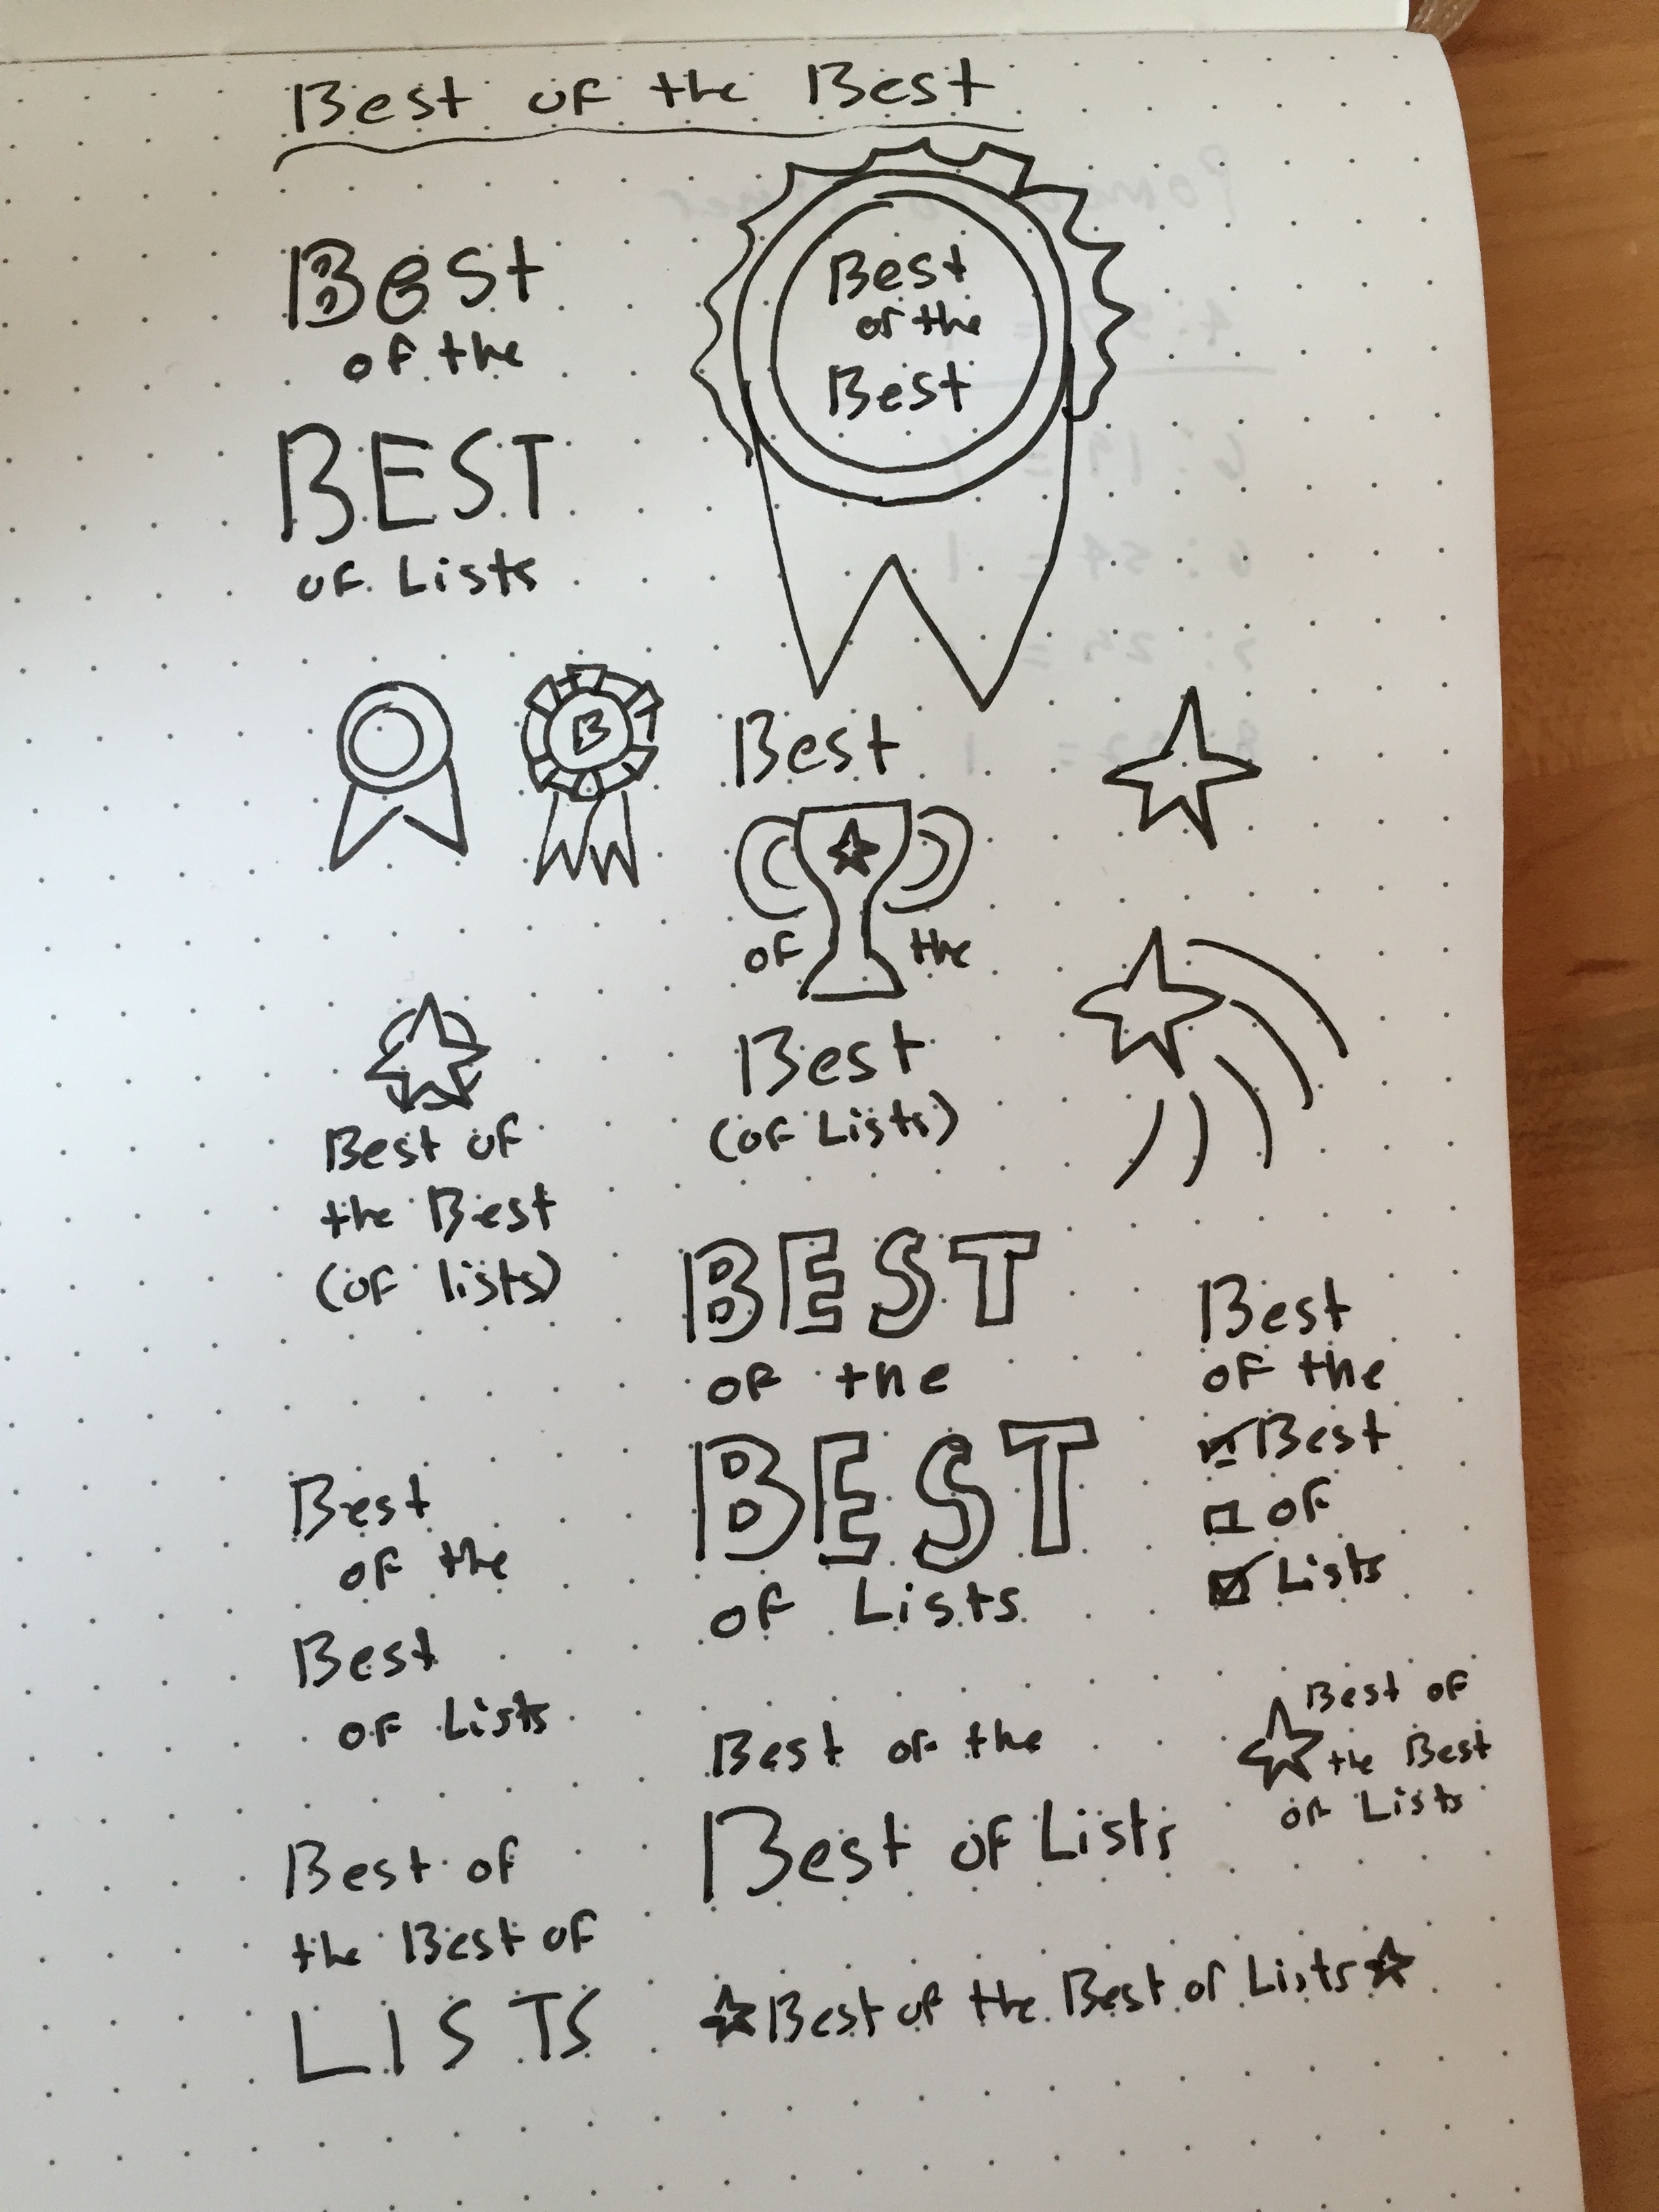 Best of the Best
Best
of the
BEST
of Lists
Best
of the
Best
B
Best
of the
Best
(of Lists)
Best of
the Best
(of lists)
BEST
of the
BEST
of Lists
Best
of the
Best
of
Lists
Best
of the
Best
of Lists
Best of the
Best of Lists
Best of
the Best
of Lists
Best of
the Best of
LISTS
Best of the Best of Lists